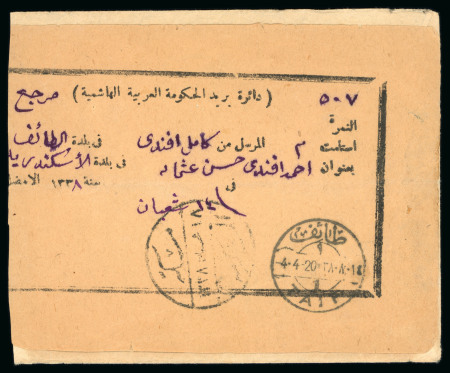 ٥٠٧ (دائرة بريد الحكومة العربية الهاشمية) مرجع
النمرة
استلمت م المرسل من كامل افندى فى بلدة الطائف
بعنوان احمد افندى حسن عثمان فى بلدة الأسكندرية
فى ١٤ شعبان سنة ١٣٣٨ الامضا
طائف
4-4-20 ٣٨-٨-١٤
TAIF